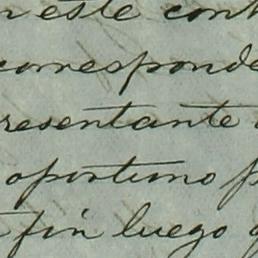 este cont
corresponde
resentante
oportuno p
fin luego